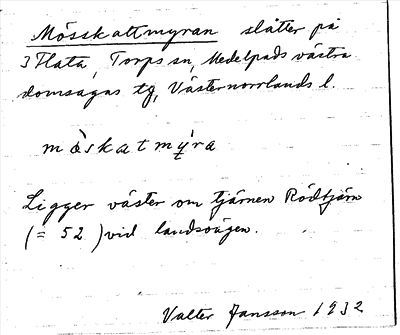 Mösskattmyran slåtter på
3 Flata, Torps sn, Medelpads västra
domsagas tg, Västernorrlands l.
mòskatmý̱ra
Ligger väster om tjärnen Rödtjärn
(= 52) vid landsvägen.
Valter Jansson 1932